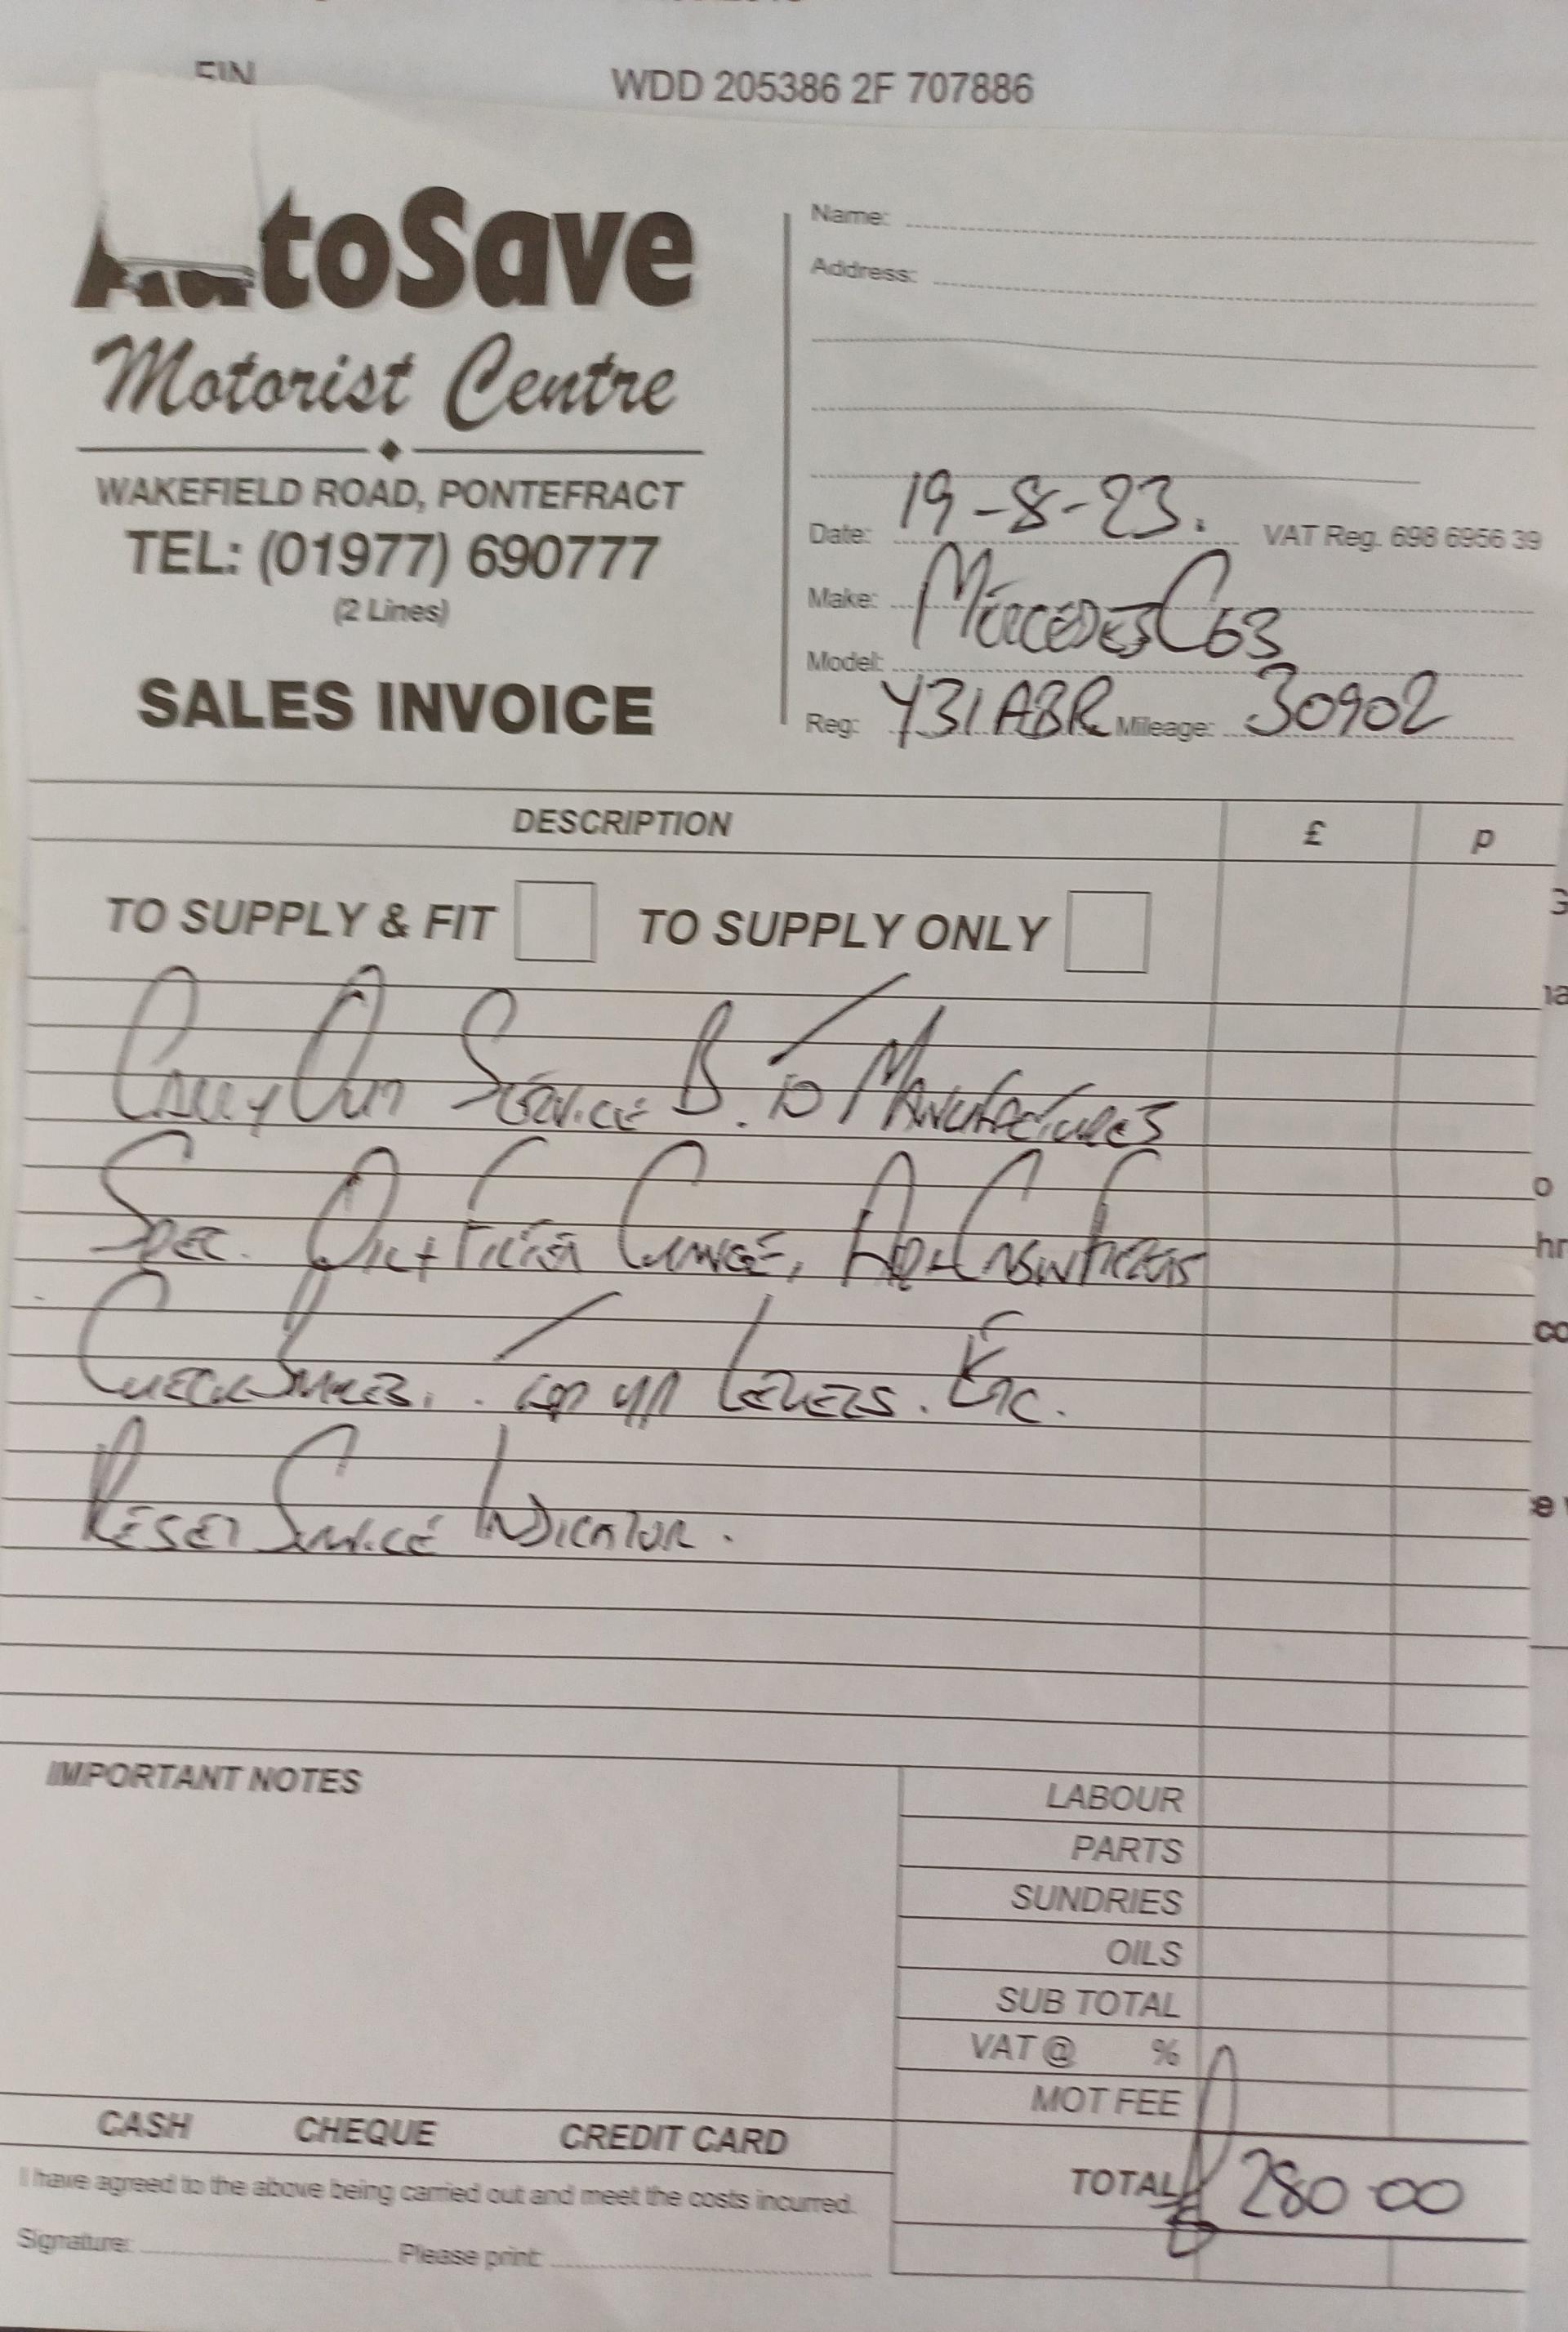 FIN
WDD 205386 2F 707886
AutoSave
Motorist Centre
WAKEFIELD ROAD, PONTEFRACT
TEL: (01977) 690777
(2 Lines)
SALES INVOICE
Name:
Address:
Date: 19-8-23. VAT Reg. 698 6956 39
Make: MERCEDES C63
Model:
Reg: Y31ABR Mileage: 30902
DESCRIPTION £ p
TO SUPPLY & FIT TO SUPPLY ONLY
CARRY OUT SERVICE B. TO MANUFACTURES
SPEC. OIL + FILTER CHANGE, AIR + CABIN FILTERS
CHECK BRAKES. TOP UP LEVELS. ETC.
RESET SERVICE INDICATOR.
IMPORTANT NOTES
LABOUR
PARTS
SUNDRIES
OILS
SUB TOTAL
VAT @ %
MOT FEE
CASH CHEQUE CREDIT CARD
TOTAL £ 280.00
I have agreed to the above being carried out and meet the costs incurred.
Signature: Please print: